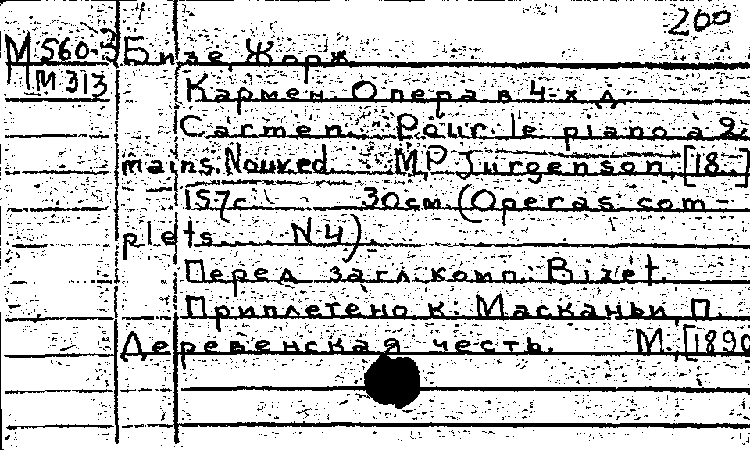 200
М 560-3 Бизе, Жорж.
М 313 Кармен. Опера в 4-х д.
Carmen. Pour le piano à 2
mains. Nouv. ed. M., P. Jurgenson, [18..]
157 с. 30 см (Operas com-
plets. N 4).
Перед загл. комп.: Bizet.
Приплетено к: Масканьи, П.
Деревенская честь. М., [1890